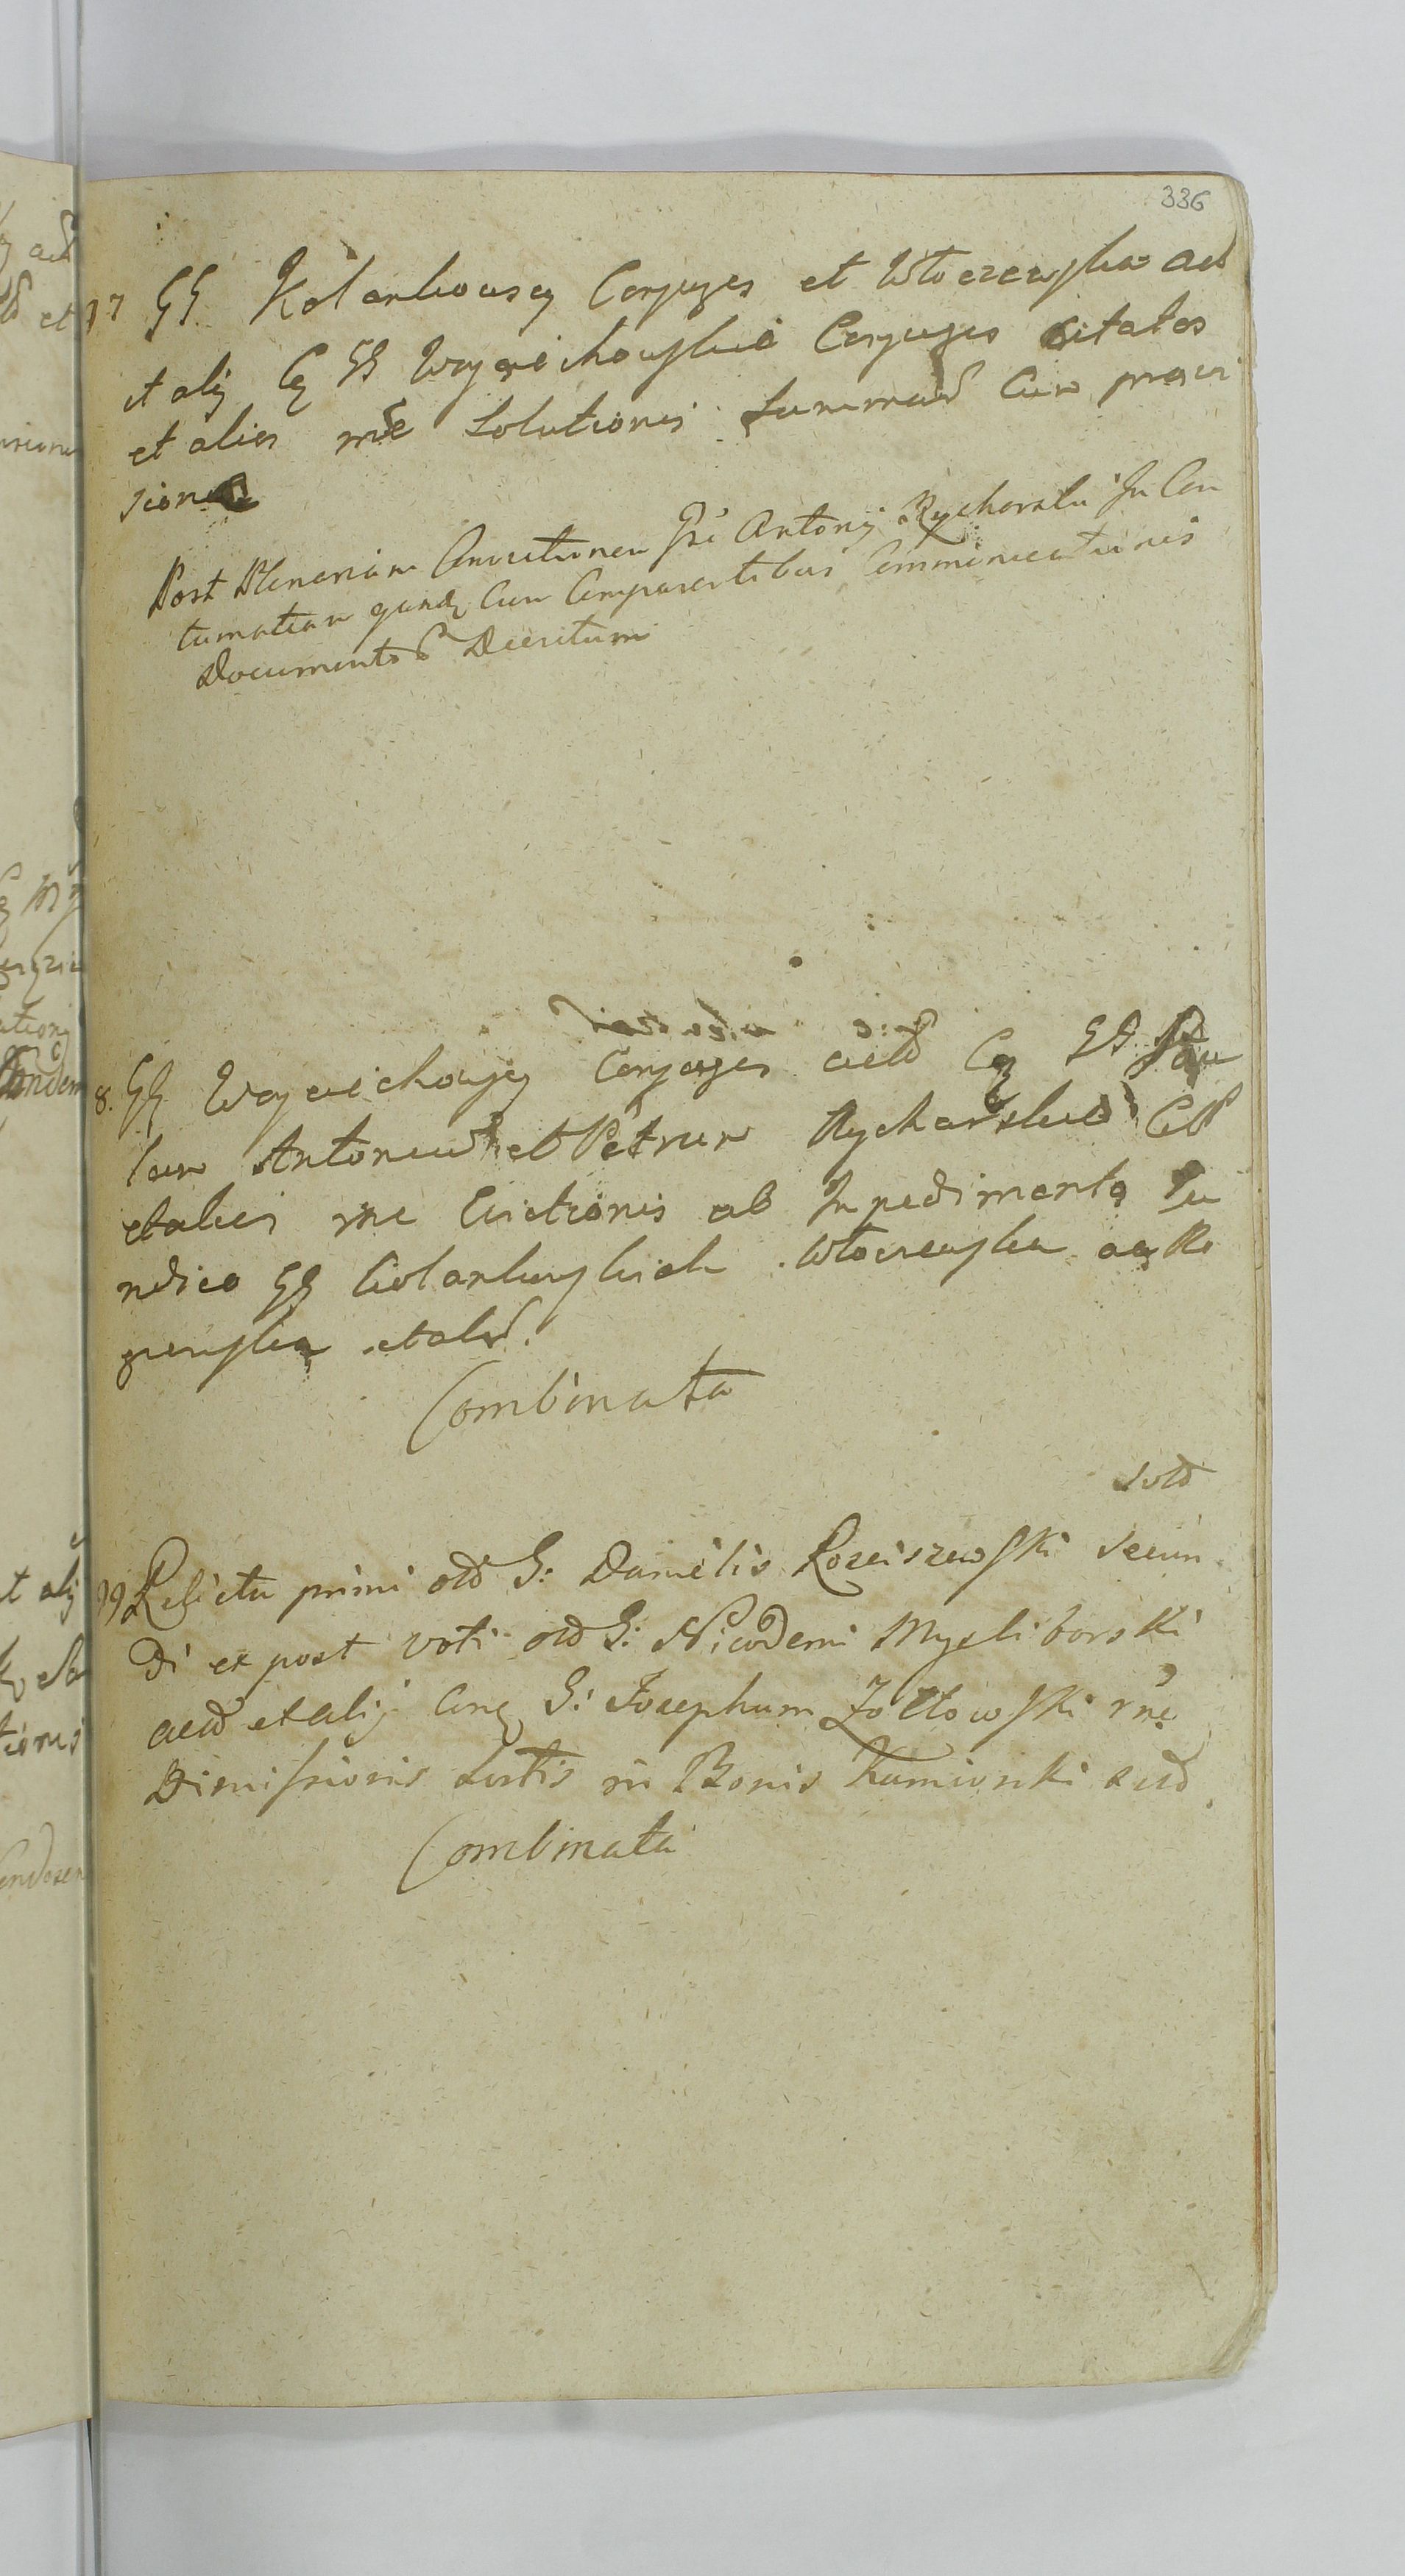 336
77 GG Kolankowscy Conjuges et Włoczewska act
et alij Cq GG Woycichowskie Conjuges citatos
et alios rne Solutionis Summarum Cum provi
sione
Post Plenariam Convictionem Gsi Antonij Rycharski In Con
tumatiam quoad Cum Comparentibus Communicationis
Documentor Decretum
8. GG Woyciechowscy Conjuges actd Cq GG Pau
lum Antonium et Petrum Rycharskie Citt
et alios rne Evictionis ab Impedimento Ju
ridico GG Kolankowskich Włoczewska acq Ro
gowska et alior.
Combinata
79 Relicta primi old G: Danielis Kosciszewski secun
di ex post voti old G: Nicodemi Mysliborski
actd et alij Cnq G: Josephum Zołtowski rne
Dimissionis Sortis in Bonis Kamionki citd
Combinata